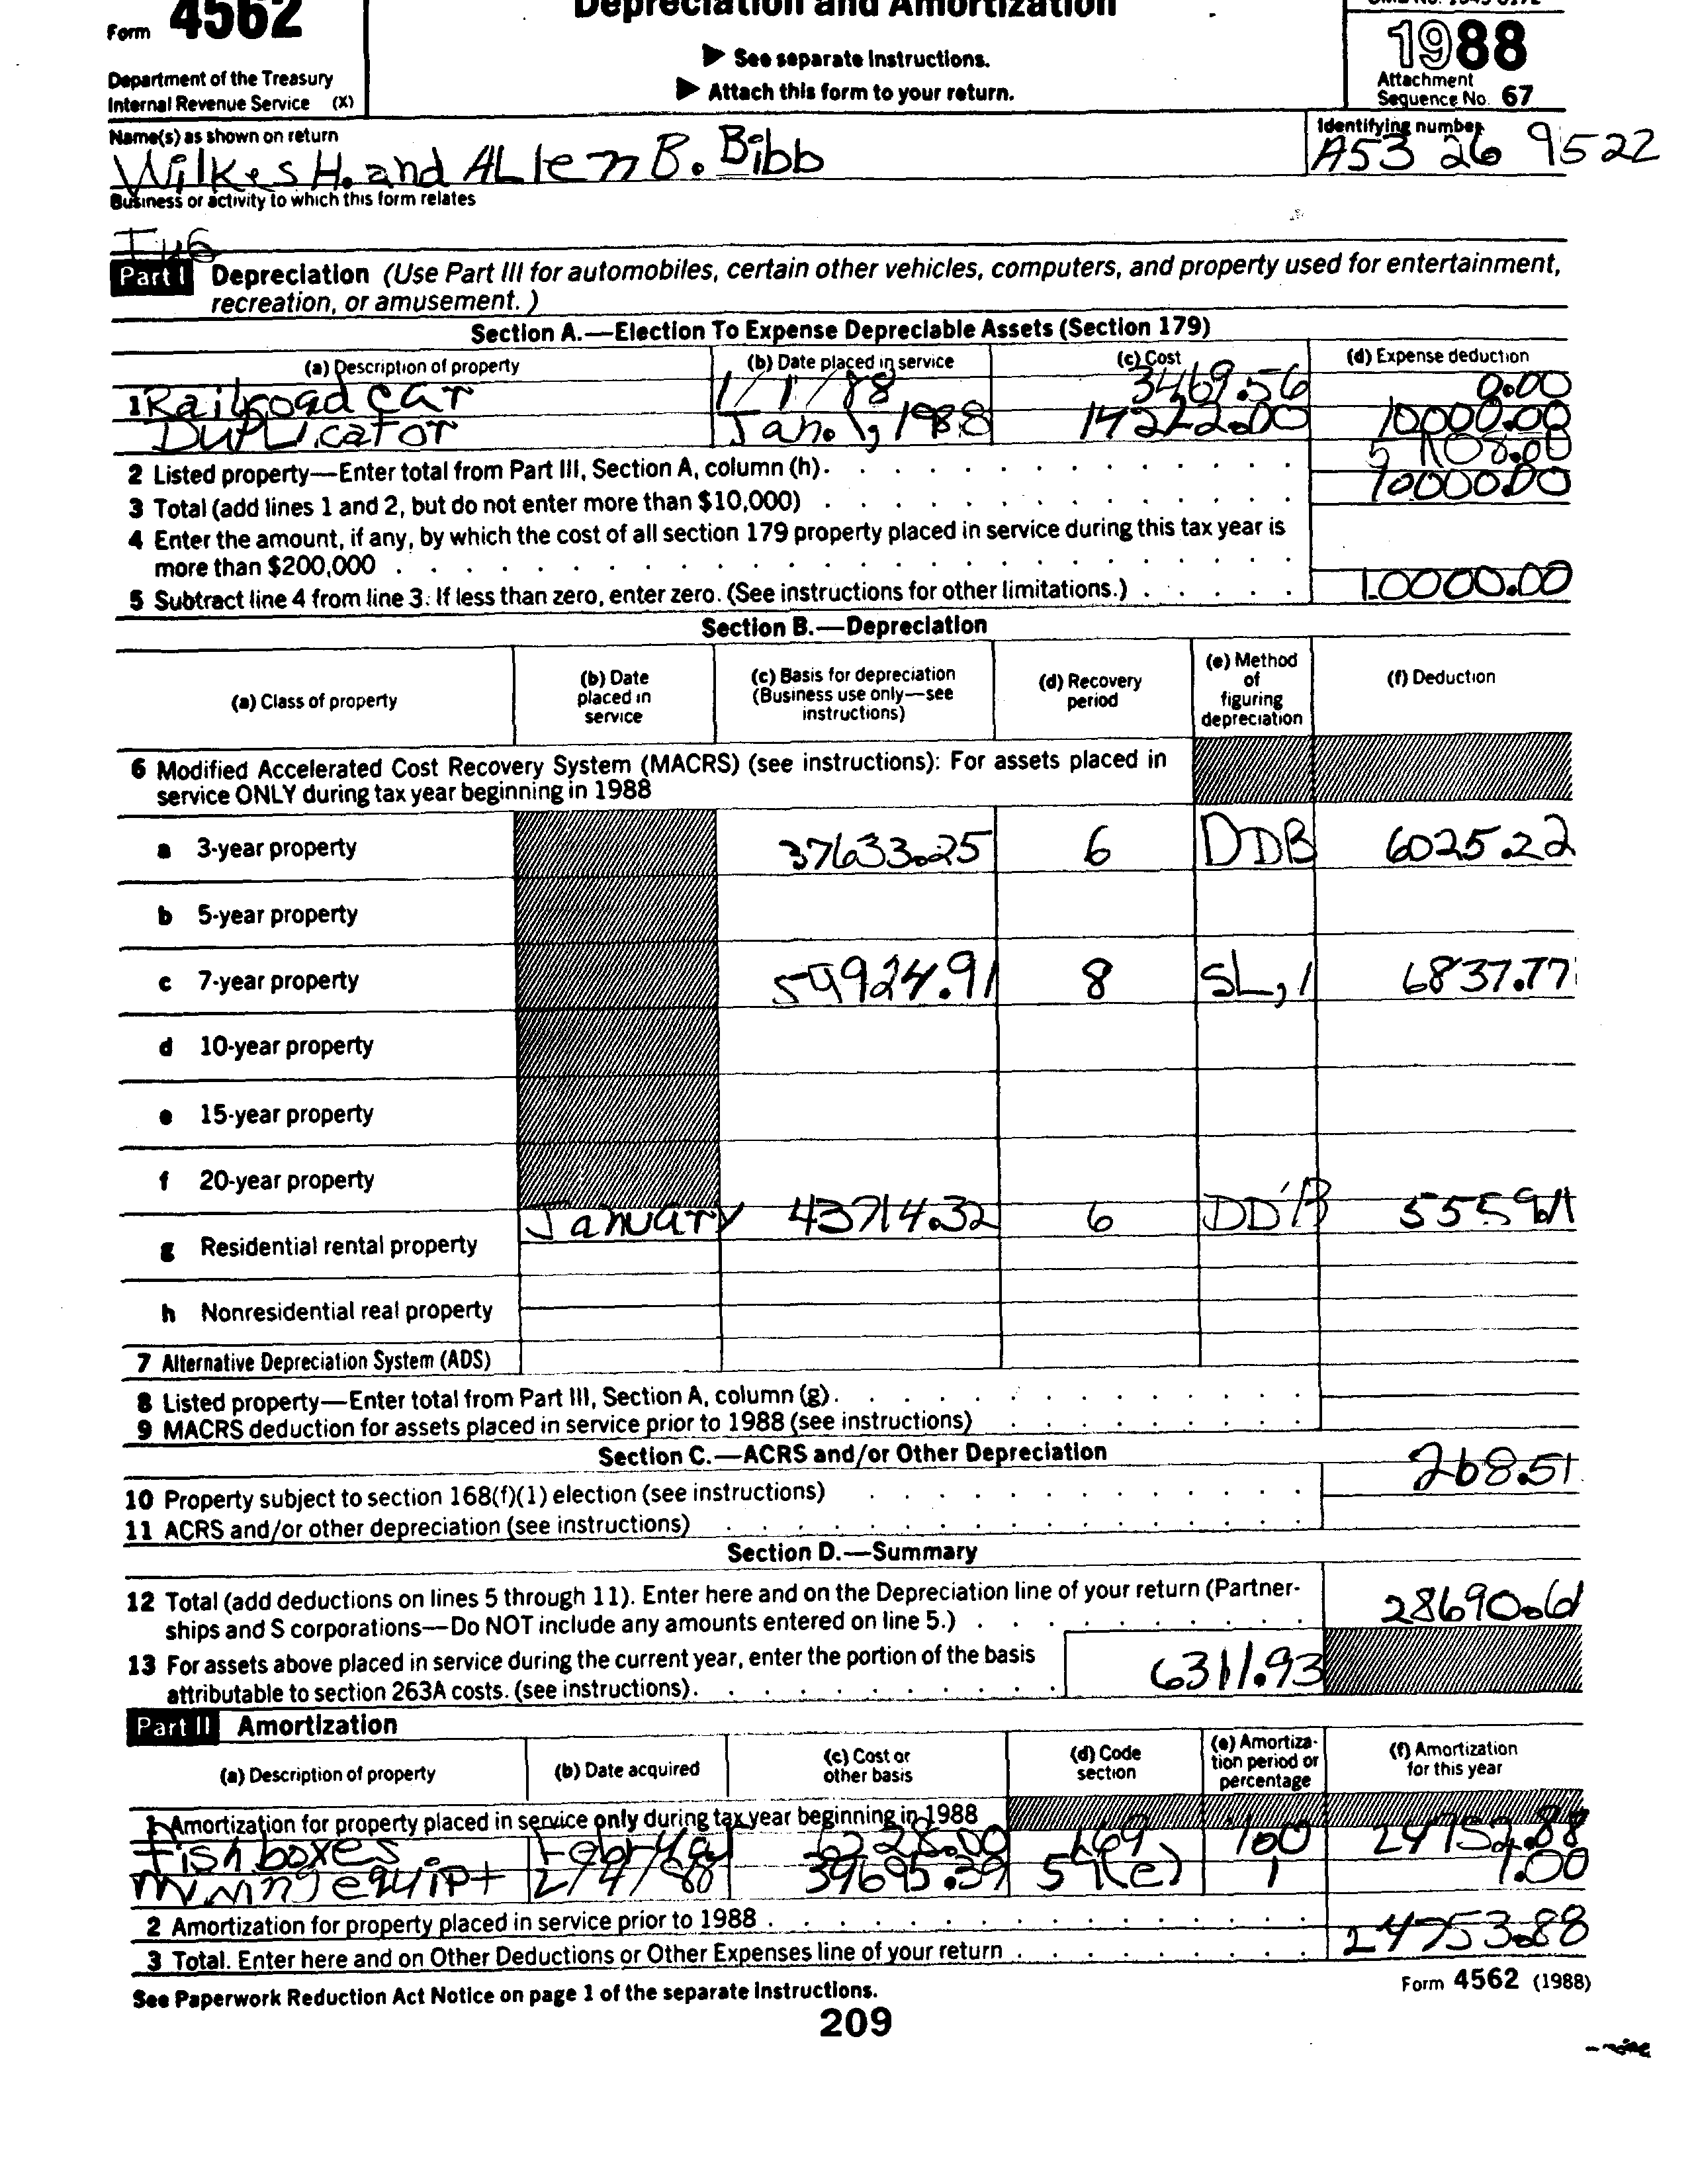 Form 4562
Depreciation and Amortization
1988
▶ See separate Instructions.
▶ Attach this form to your return.
Department of the Treasury
Internal Revenue Service (X)
Attachment
Sequence No. 67
Name(s) as shown on return
Identifying number
Wilkes H. and ALlen B. Bibb
A53 26 9522
Business or activity to which this form relates
Part I Depreciation (Use Part III for automobiles, certain other vehicles, computers, and property used for entertainment,
recreation, or amusement.)
Section A.—Election To Expense Depreciable Assets (Section 179)
(a) Description of property (b) Date placed in service (c) Cost (d) Expense deduction
1 Railroad car 1/1/88 3469.56 0.00
DupLicator Jan. 1, 1988 14222.00 10000.00
2 Listed property—Enter total from Part III, Section A, column (h). 5108.00
3 Total (add lines 1 and 2, but do not enter more than $10,000) 10000.00
4 Enter the amount, if any, by which the cost of all section 179 property placed in service during this tax year is
more than $200,000
5 Subtract line 4 from line 3. If less than zero, enter zero. (See instructions for other limitations.) 10000.00
Section B.—Depreciation
(a) Class of property (b) Date placed in service (c) Basis for depreciation (Business use only—see instructions) (d) Recovery period (e) Method of figuring depreciation (f) Deduction
6 Modified Accelerated Cost Recovery System (MACRS) (see instructions): For assets placed in
service ONLY during tax year beginning in 1988
a 3-year property 37633.25 6 DDB 6025.22
b 5-year property
c 7-year property 59924.91 8 SL, 1 6837.77
d 10-year property
e 15-year property
f 20-year property
January 43714.32 6 DDB 5559.11
g Residential rental property
h Nonresidential real property
7 Alternative Depreciation System (ADS)
8 Listed property—Enter total from Part III, Section A, column (g).
9 MACRS deduction for assets placed in service prior to 1988 (see instructions)
Section C.—ACRS and/or Other Depreciation
268.51
10 Property subject to section 168(f)(1) election (see instructions)
11 ACRS and/or other depreciation (see instructions)
Section D.—Summary
12 Total (add deductions on lines 5 through 11). Enter here and on the Depreciation line of your return (Partner-
ships and S corporations—Do NOT include any amounts entered on line 5.) 28690.61
13 For assets above placed in service during the current year, enter the portion of the basis
attributable to section 263A costs. (see instructions). 6311.93
Part II Amortization
(a) Description of property (b) Date acquired (c) Cost or other basis (d) Code section (e) Amortization period or percentage (f) Amortization for this year
1 Amortization for property placed in service only during tax year beginning in 1988
Fish boxes 6228.00 169 100 24752.88
Mining equipt 2/4/88 39695.39 59(e) 1 1.00
2 Amortization for property placed in service prior to 1988
3 Total. Enter here and on Other Deductions or Other Expenses line of your return 24753.88
See Paperwork Reduction Act Notice on page 1 of the separate Instructions.
Form 4562 (1988)
209